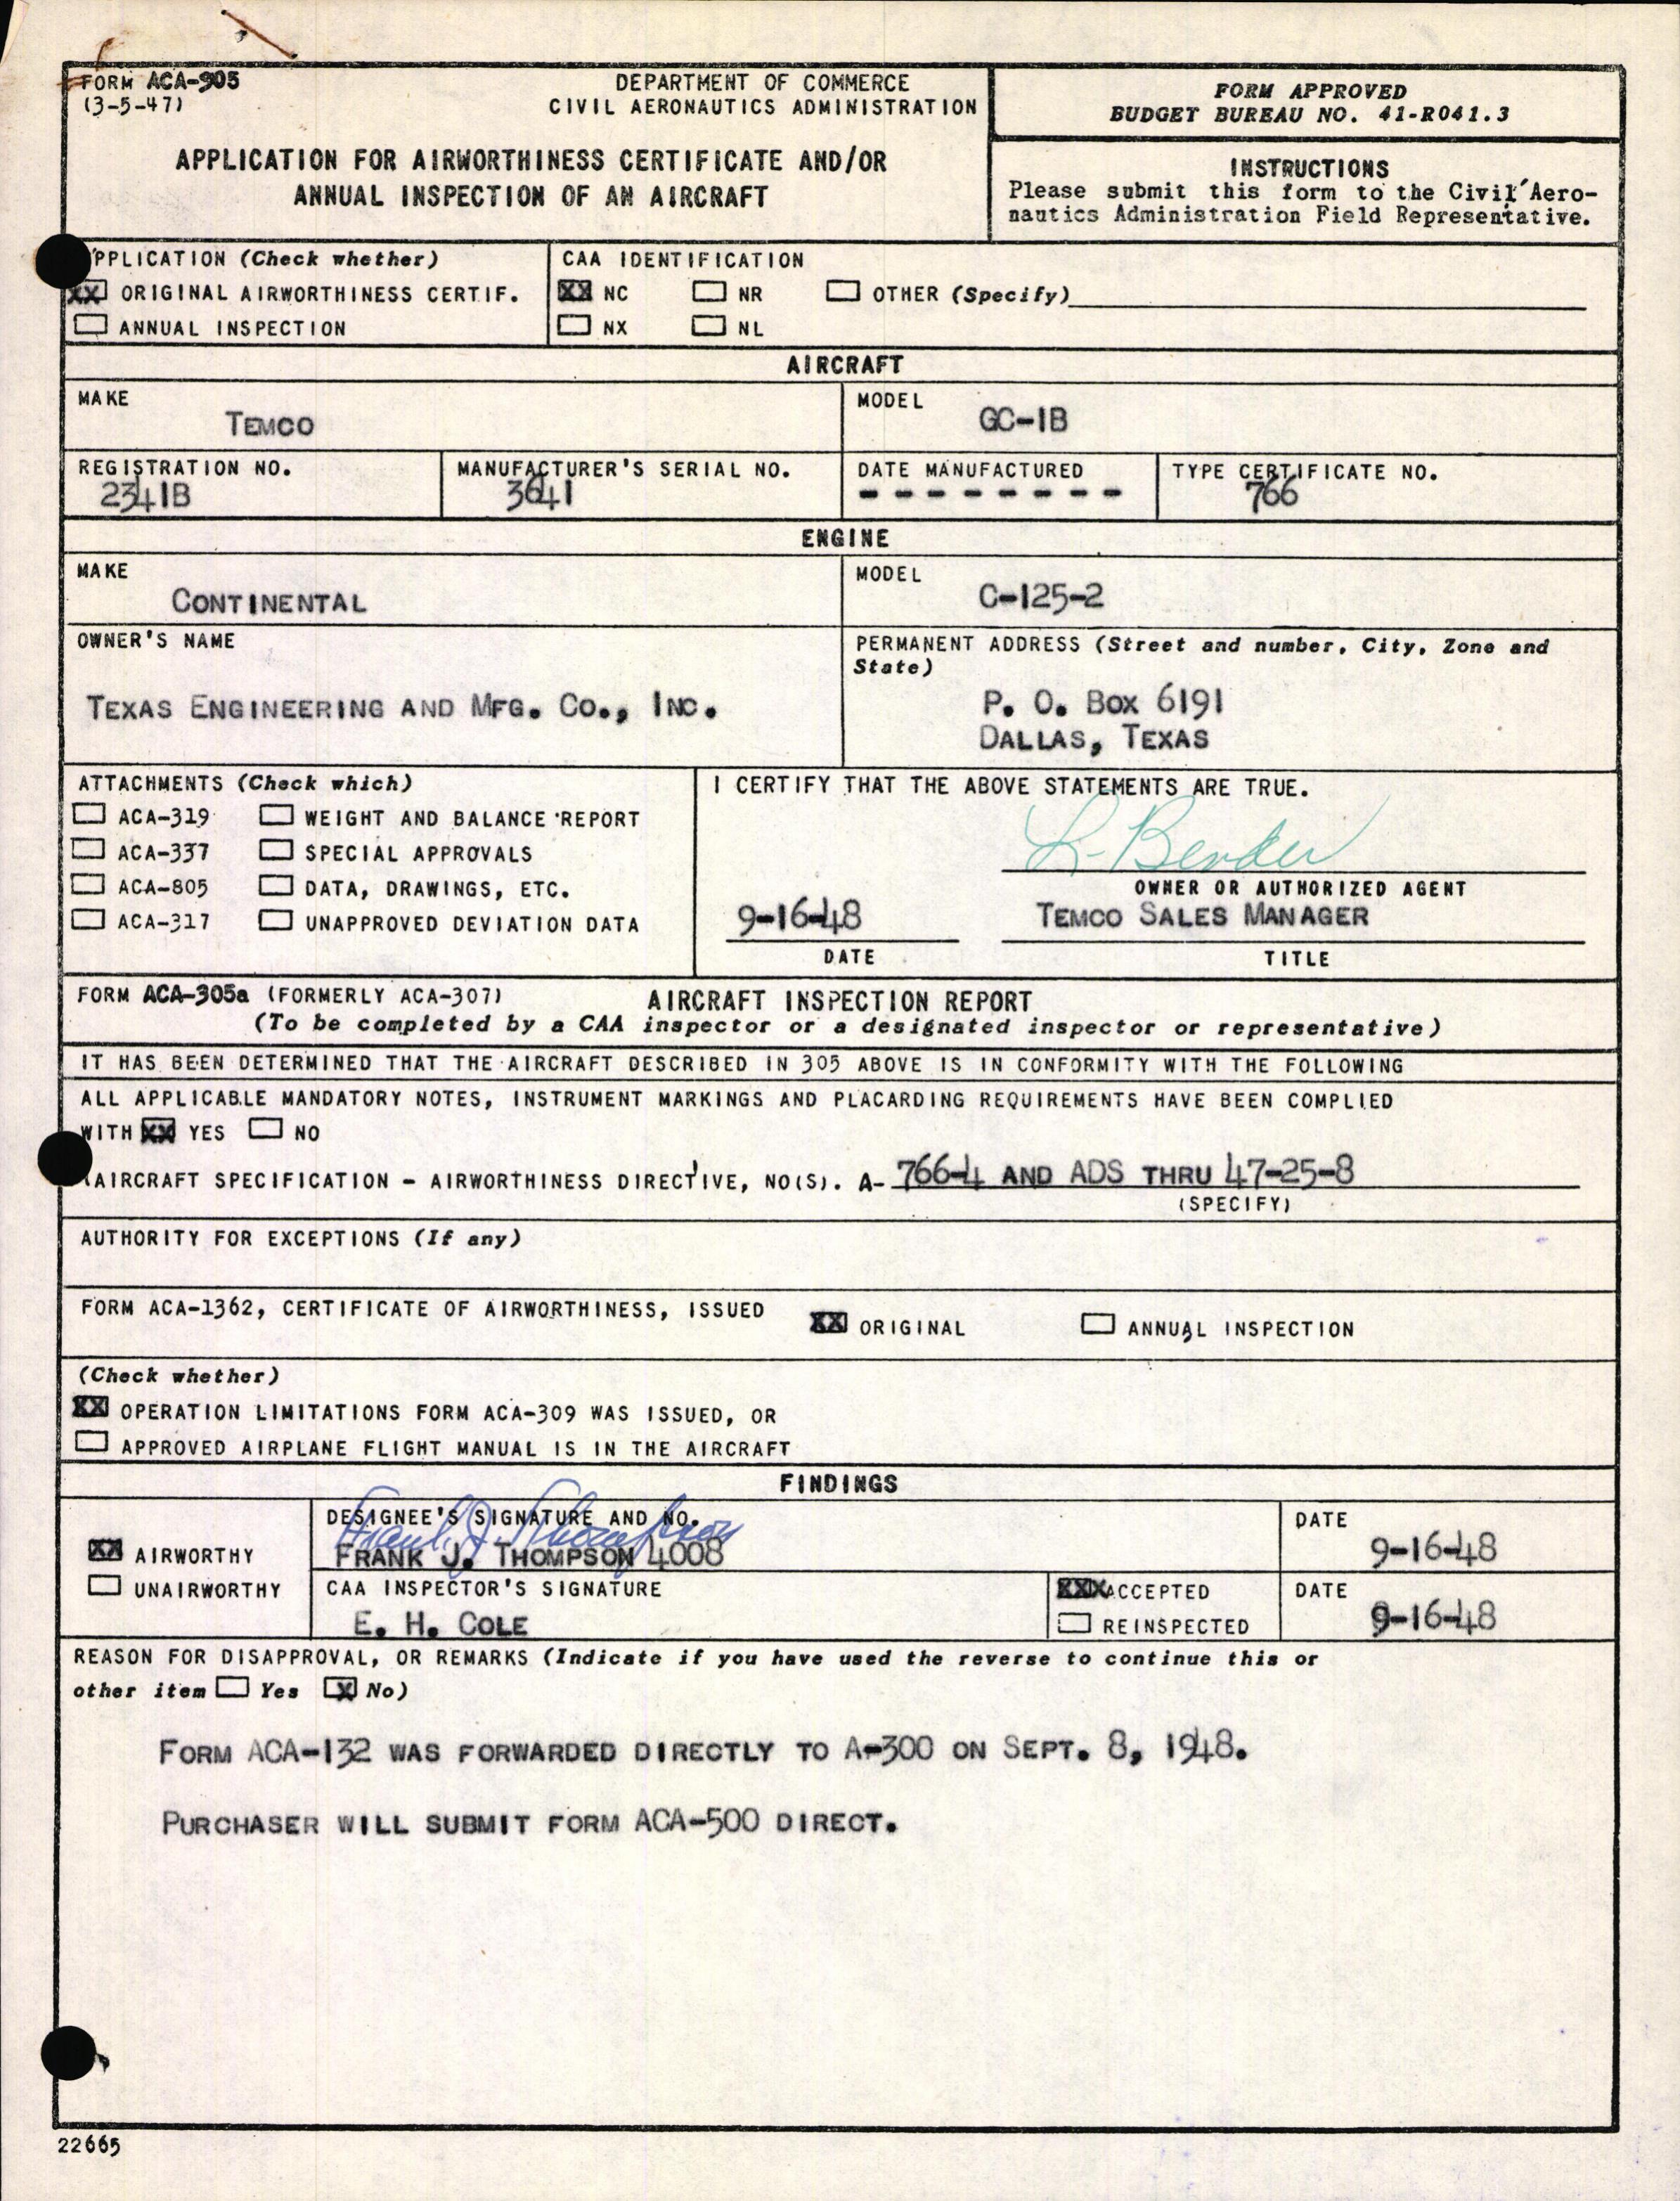 FORM ACA-305
(3-5-47)
DEPARTMENT OF COMMERCE
CIVIL AERONAUTICS ADMINISTRATION
APPLICATION FOR AIRWORTHINESS CERTIFICATE AND/OR
ANNUAL INSPECTION OF AN AIRCRAFT
FORM APPROVED
BUDGET BUREAU NO. 41-R041.3
INSTRUCTIONS
Please submit this form to the Civil Aero-
nautics Administration Field Representative.
APPLICATION (Check whether)
XX ORIGINAL AIRWORTHINESS CERTIF.
ANNUAL INSPECTION
CAA IDENTIFICATION
XX NC NR OTHER (Specify)
NX NL
AIRCRAFT
MAKE
TEMCO
MODEL
GC-1B
REGISTRATION NO.
2341B
MANUFACTURER'S SERIAL NO.
3641
DATE MANUFACTURED
- - - - - - - -
TYPE CERTIFICATE NO.
766
ENGINE
MAKE
CONTINENTAL
MODEL
C-125-2
OWNER'S NAME
TEXAS ENGINEERING AND MFG. CO., INC.
PERMANENT ADDRESS (Street and number, City, Zone and
State)
P. O. BOX 6191
DALLAS, TEXAS
ATTACHMENTS (Check which)
ACA-319 WEIGHT AND BALANCE REPORT
ACA-337 SPECIAL APPROVALS
ACA-805 DATA, DRAWINGS, ETC.
ACA-317 UNAPPROVED DEVIATION DATA
I CERTIFY THAT THE ABOVE STATEMENTS ARE TRUE.
L. Bender
OWNER OR AUTHORIZED AGENT
9-16-48 TEMCO SALES MANAGER
DATE TITLE
FORM ACA-305a (FORMERLY ACA-307) AIRCRAFT INSPECTION REPORT
(To be completed by a CAA inspector or a designated inspector or representative)
IT HAS BEEN DETERMINED THAT THE AIRCRAFT DESCRIBED IN 305 ABOVE IS IN CONFORMITY WITH THE FOLLOWING
ALL APPLICABLE MANDATORY NOTES, INSTRUMENT MARKINGS AND PLACARDING REQUIREMENTS HAVE BEEN COMPLIED
WITH XX YES NO
(AIRCRAFT SPECIFICATION - AIRWORTHINESS DIRECTIVE, NO(S). A- 766-4 AND ADS THRU 47-25-8
(SPECIFY)
AUTHORITY FOR EXCEPTIONS (If any)
FORM ACA-1362, CERTIFICATE OF AIRWORTHINESS, ISSUED XX ORIGINAL ANNUAL INSPECTION
(Check whether)
XX OPERATION LIMITATIONS FORM ACA-309 WAS ISSUED, OR
APPROVED AIRPLANE FLIGHT MANUAL IS IN THE AIRCRAFT
FINDINGS
XX AIRWORTHY
UNAIRWORTHY
DESIGNEE'S SIGNATURE AND NO.
Frank J. Thompson
FRANK J. THOMPSON 4008
DATE
9-16-48
CAA INSPECTOR'S SIGNATURE
E. H. COLE
XXX ACCEPTED
REINSPECTED
DATE
9-16-48
REASON FOR DISAPPROVAL, OR REMARKS (Indicate if you have used the reverse to continue this or
other item Yes X No)
FORM ACA-132 WAS FORWARDED DIRECTLY TO A-300 ON SEPT. 8, 1948.
PURCHASER WILL SUBMIT FORM ACA-500 DIRECT.
22665